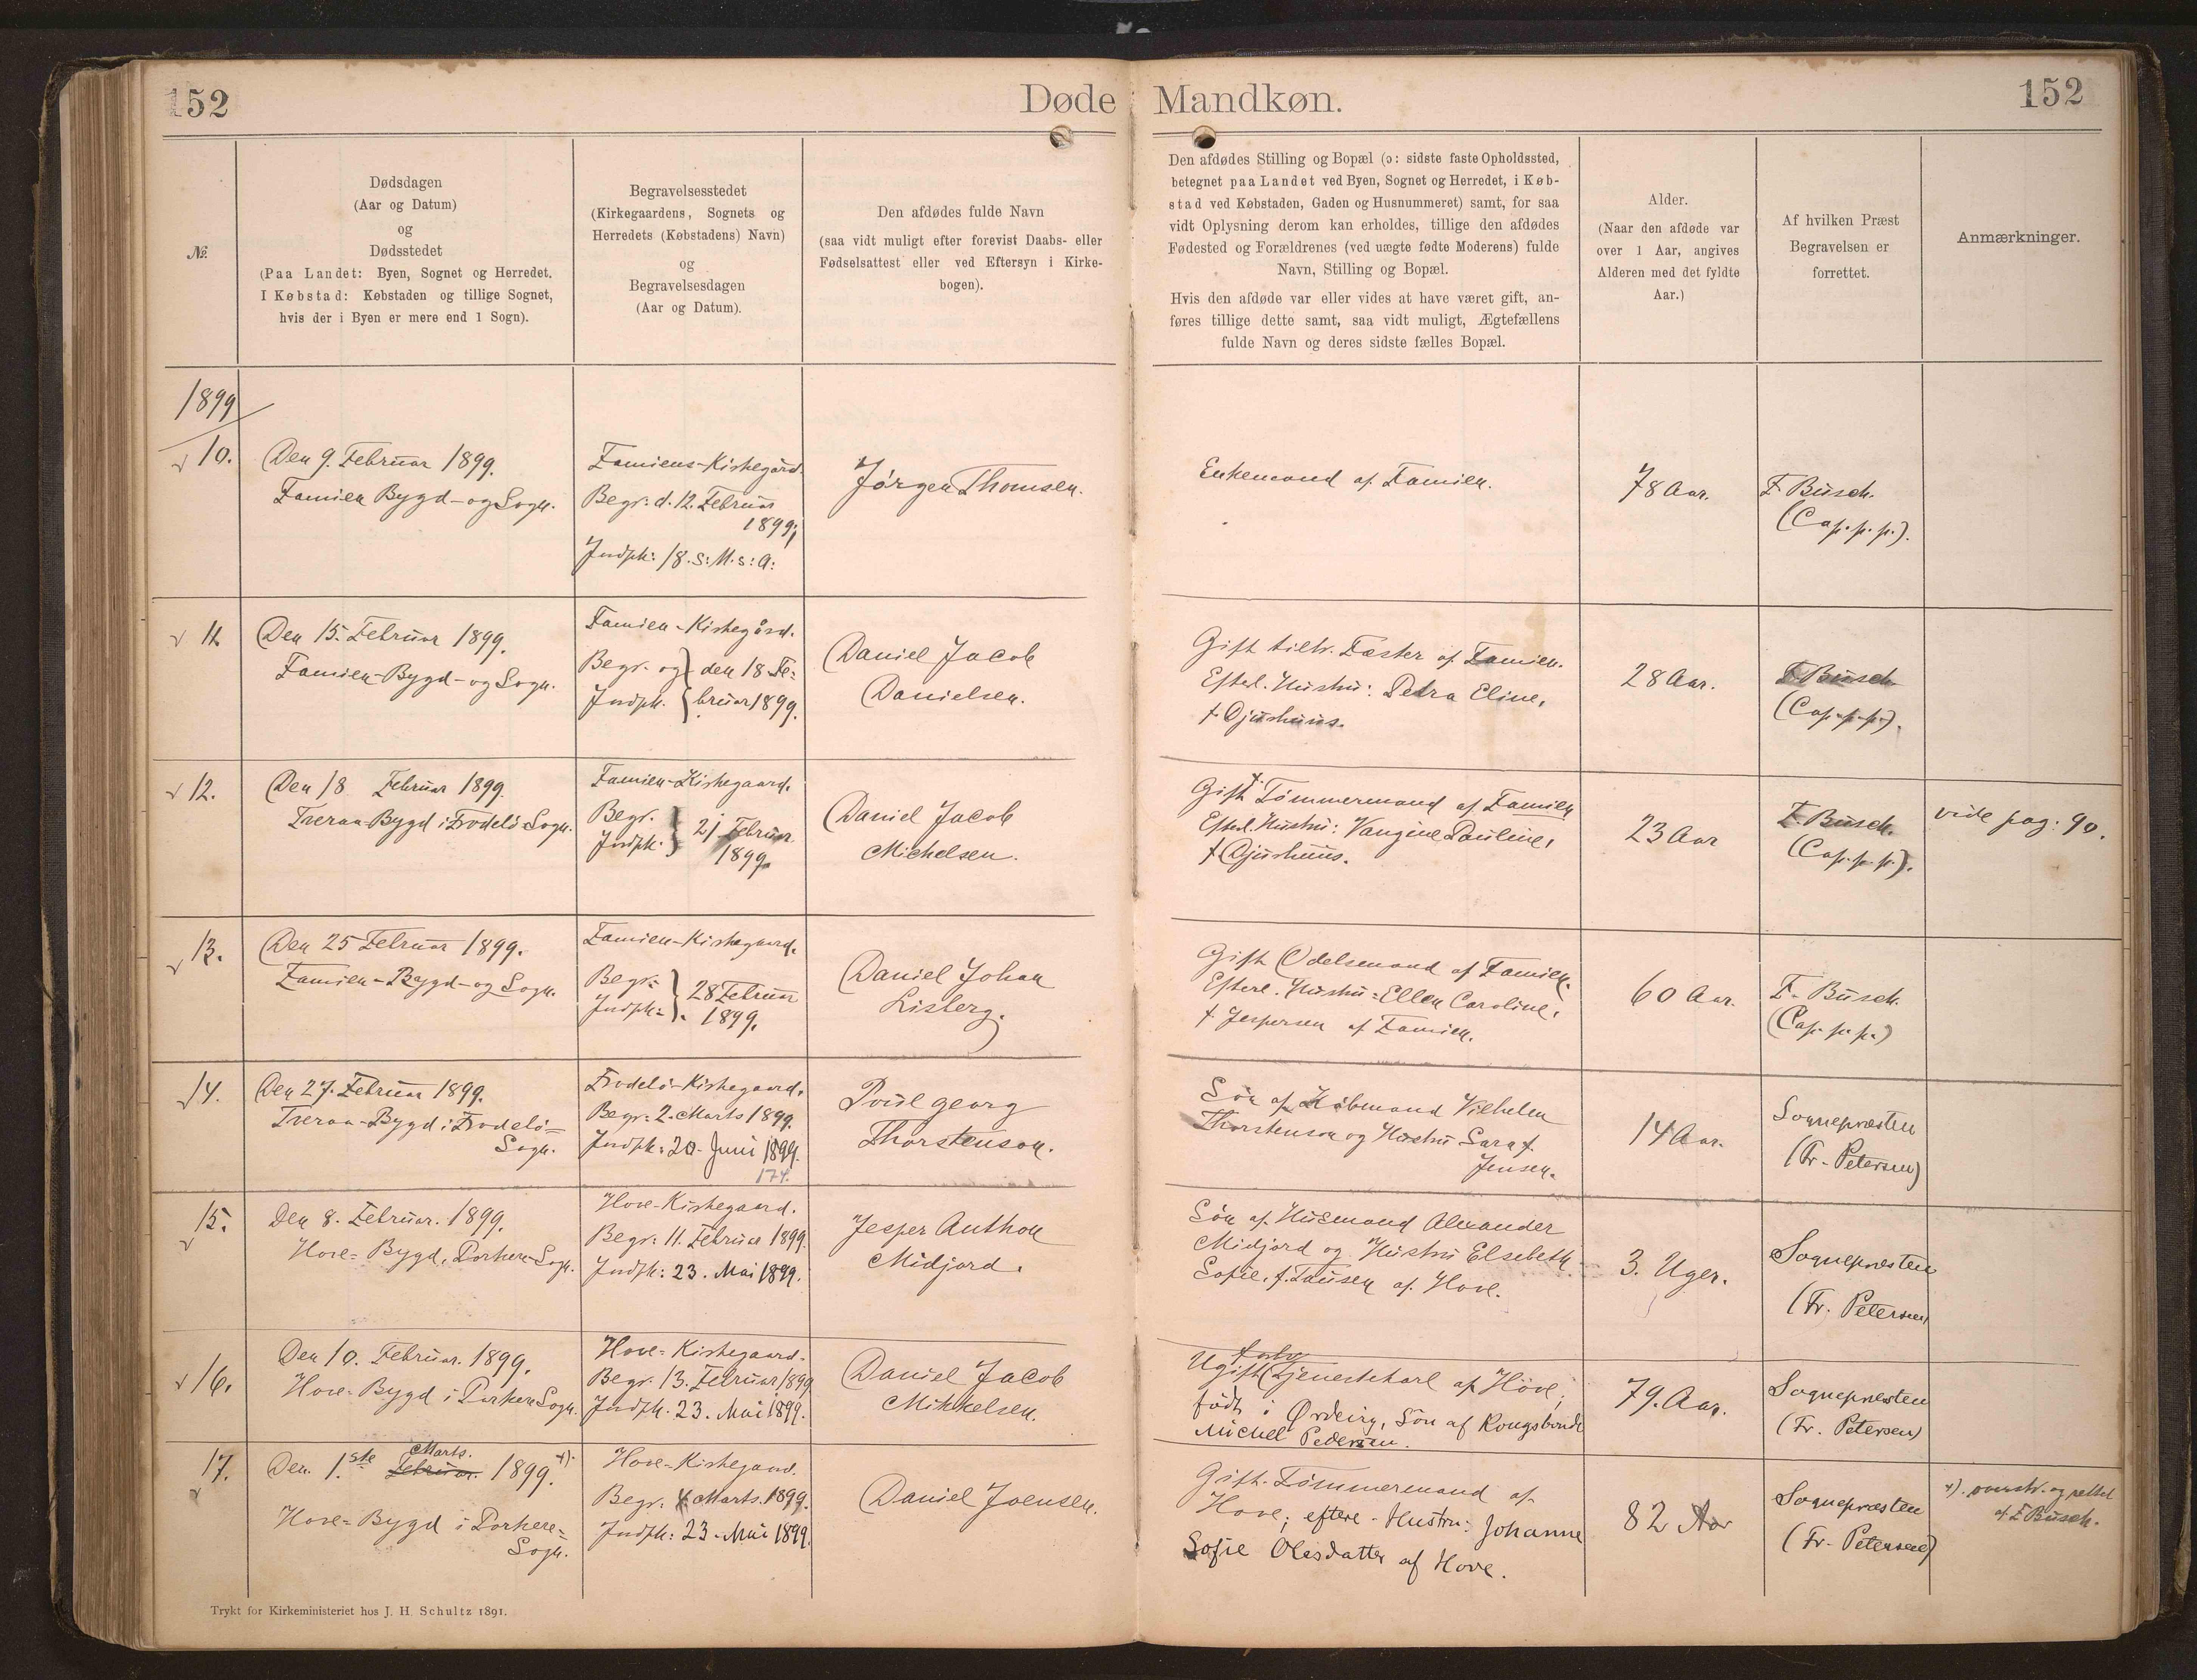 152
Døde Mandkøn.
152
№
Dødsdagen
(Aar og Datum)
og
Dødsstedet
(Paa Landet: Byen, Sognet og Herredet.
I Købstad: Købstaden og tillige Sognet,
hvis der i Byen er mere end 1 Sogn).
Begravelsesstedet
(Kirkegaardens, Sognets og
Herredets (Købstadens) Navn)
og
Begravelsesdagen
(Aar og Datum).
Den afdødes fulde Navn
(saa vidt muligt efter forevist Daabs- eller
Fødselsattest eller ved Eftersyn i Kirke-
bogen).
Den afdødes Stilling og Bopæl (ɔ: sidste faste Opholdssted,
betegnet paa Landet ved Byen, Sognet og Herredet, i Køb-
stad ved Købstaden, Gaden og Husnummeret) samt, for saa
vidt Oplysning derom kan erholdes, tillige den afdødes
Fødested og Forældrenes (ved uægte fødte Moderens) fulde
Navn, Stilling og Bopæl.
Hvis den afdøde var eller vides at have været gift, an-
føres tillige dette samt, saa vidt muligt, Ægtefællens
fulde Navn og deres sidste fælles Bopæl.
Alder.
(Naar den afdøde var
over 1 Aar, angives
Alderen med det fyldte
Aar.)
Af hvilken Præst
Begravelsen er
forrettet.
Anmærkninger.
1899
10.
Den 9. Februar 1899.
Famien Bygd- og Sogn.
Famiens-Kirkegård.
Begr: d. 12. Februar
1899;
Jndph: 18. s: M. s: A:
Jørgen Thomsen.
Enkemand af Famien.
78 Aar.
F. Busch.
(Cap. p. p.).
11.
Den 15. Februar 1899.
Famien-Bygd- og Sogn.
Famien-Kirkegård.
Begr. og den 18 Fe-
Jndph. bruar 1899.
Daniel Jacob
Danielsen.
Gift tilh. Fæster af Famien.
Efterl. Hustru: Petra Eline,
f. Djurhuus.
28 Aar.
F. Busch.
(Cap. p. p.).
12.
Den 18 Februar 1899.
Tveraa-Bygd i Frodebø Sogn.
Famien-Kirkegaard.
Begr.
Jndph. 21 Februar
1899.
Daniel Jacob
Michelsen.
Gift Tømmermand af Famien
Efterl. Hustru: Vangine Pauline,
f. Djurhuus.
23 Aar
F. Busch.
(Cap. p. p.).
vide pag: 90.
13.
Den 25 Februar 1899.
Famien-Bygd- og Sogn.
Famien-Kirkegaard.
Begr:
Jndph: 28 Februar
1899.
Daniel Johan
Lisberg.
Gift Odelsmand af Famien.
Efterl. Hustru: Ellen Caroline,
f. Jespersen af Famien.
60 Aar.
F. Busch.
(Cap. p. p.)
14.
Den 27. Februar 1899.
Tveraa-Bygd i Frodebø-
Sogn.
Frodebø-Kirkegaard.
Begr: 2. Marts 1899.
Jndph: 20. Juni 1899.
174.
Poul georg
Thorstenson.
Søn af Købmand Vilhelm
Thorstenson og Hustru Sara f.
Jensen.
14 Aar.
Sognepræsten
(Fr. Petersen)
15.
Den 8. Februar. 1899.
Hove-Bygd, Porkere-Sogn.
Hove-Kirkegaard.
Begr: 11. Februar 1899.
Jndph: 23. Mai 1899.
Jesper Anthon
Midjord.
Søn af Husmand Alexander
Midjord og Hustru Elsebeth
Sofie, f. Tausen af Hove.
3. Uger.
Sognepræsten
(Fr. Petersen)
16.
Den 10. Februar. 1899.
Hove-Bygd i Porkere Sogn.
Hove-Kirkegaard.
Begr. 13. Februar 1899
Jndph. 23. Mai 1899.
Daniel Jacob
Mikkelsen.
Ugift Tjenestekarl af Hove;
født i Ørdevig, Søn af Kongsbonde
Michel Pedersen.
79. Aar.
Sognepræsten
(Fr. Petersen)
17.
Marts.
Den 1.ste Februar. 1899. +).
Hove-Bygd i Porkere-
Sogn.
Hove-Kirkegaard.
Begr. 4 Marts. 1899.
Jndph: 23. Mai 1899.
Daniel Joensen.
Gift Tømmermand af
Hove; efterl. Hustru: Johanne
Sofie Olesdatter af Hove.
82 Aar
Sognepræsten
(Fr. Petersen)
+). overstr. og rettet
af F. Busch.
Trykt for Kirkeministeriet hos J. H. Schultz 1891.